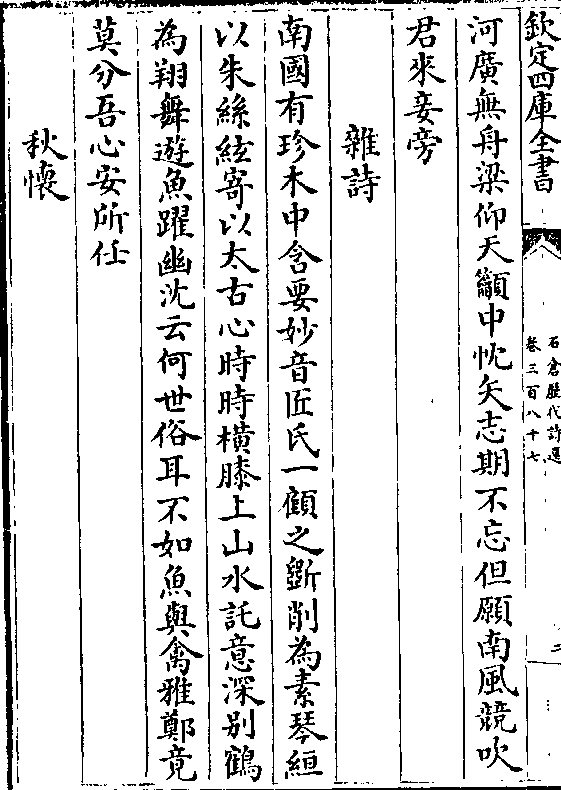 欽定四庫全書
石倉歷代詩選
卷三百八十七
二
河廣無舟梁仰天籲中忱矢志期不忘但願南風競吹
君來妾旁
雜詩
南國有珍木中含要妙音匠氏一顧之斵削為素琴絙
以朱絲絃寄以太古心時時横膝上山水託意深别鶴
為翔舞遊魚躍幽沈云何世俗耳不如魚與禽雅鄭竟
莫分吾心安所任
秋懷